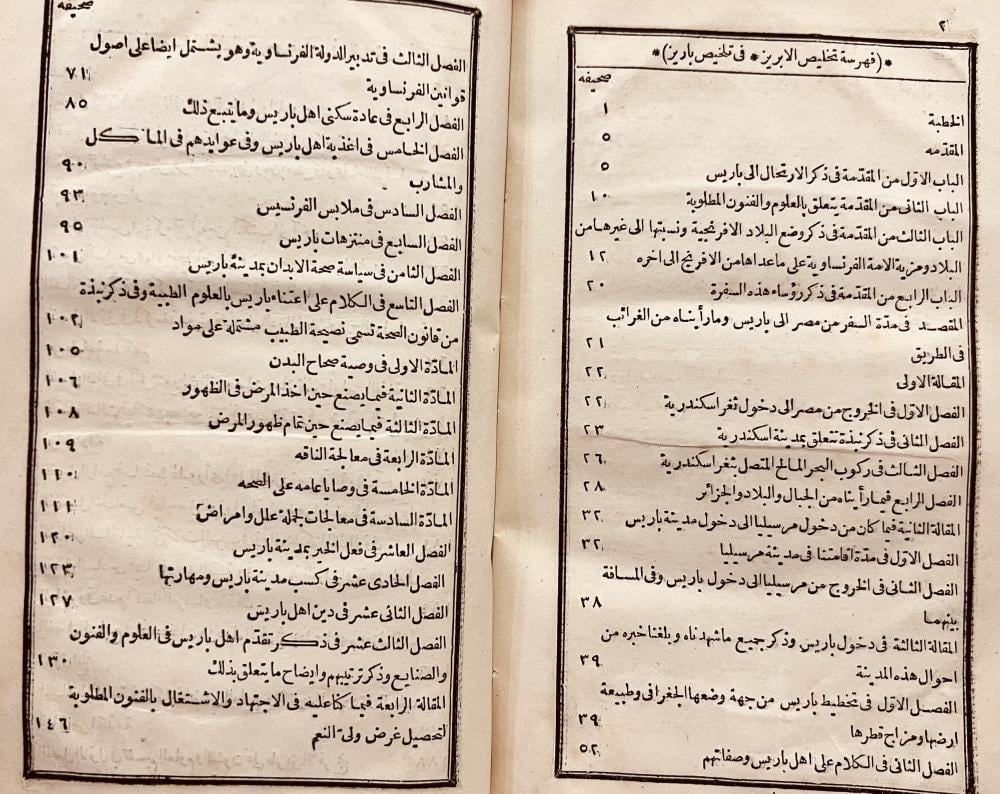 ٢
*(فهرسة تخليص الابريز * فى تلخيص باريز)*
صحيفه
الخطبة ١
المقدّمه ٥
الباب الاوّل من المقدّمة فى ذكر الارتحال الى باريس ٥
الباب الثانى من المقدّمة يتعلق بالعلوم والفنون المطلوبة ١٠
الباب الثالث من المقدّمة فى ذكر وضع البلاد الافرنجية ونسبتها الى غيرها من
البلاد ومزية الامة الفرنساوية على ما عداها من الافرنج الى اخره ١٢
الباب الرابع من المقدّمة فى ذكر رؤساء هذه السفرة ٢٠
المقصد فى مدّة السفر من مصر الى باريس وما رأيناه من الغرائب
فى الطريق ٢١
المقالة الاولى ٢٢
الفصل الاوّل فى الخروج من مصر الى دخول ثغر اسكندرية ٢٢
الفصل الثانى فى ذكر نبذة تتعلق بمدينة اسكندرية ٢٣
الفصل الثالث فى ركوب البحر المالح المتصل بثغر اسكندرية ٢٦
الفصل الرابع فيما رأيناه من الجبال والبلاد والجزائر ٢٨
المقالة الثانية فيما كان من دخول مرسيليا الى دخول مدينة باريس ٣٢
الفصل الاوّل فى مدّة اقامتنا فى مدينة مرسيليا ٣٢
الفصل الثانى فى الخروج من مرسيليا الى دخول باريس وفى المسافة
بينهما ٣٨
المقالة الثالثة فى دخول باريس وذكر جميع ما شهدناه وبلغنا خبره من
احوال هذه المدينة ٣٩
الفصل الاوّل فى تخطيط باريس من جهة وضعها الجغرافى وطبيعة
ارضها ومزاج قطرها ٣٩
الفصل الثانى فى الكلام على اهل باريس وصفاتهم ٥٢
صحيفه
الفصل الثالث فى تدبير الدولة الفرنساوية وهو يشتمل ايضا على اصول
قوانين الفرنساوية ٧١
الفصل الرابع فى عادة سكنى اهل باريس وما يتبع ذلك ٨٥
الفصل الخامس فى اغذية اهل باريس وفى عوايدهم فى الماكل
والمشارب ٩٠
الفصل السادس فى ملابس الفرنسيس ٩٣
الفصل السابع فى منتزهات باريس ٩٥
الفصل الثامن فى سياسة صحة الابدان بمدينة باريس ١٠١
الفصل التاسع فى الكلام على اعتناء باريس بالعلوم الطبية وفى ذكر نبذة
من قانون الصحة تسمى نصيحة الطبيب مشتملة على مواد ١٠٢
المادّة الاولى فى وصية صحاح البدن ١٠٥
المادّة الثانية فيما يصنع حين اخذ المرض فى الظهور ١٠٦
المادّة الثالثة فيما يصنع حين تمام ظهور المرض ١٠٨
المادّة الرابعة فى معالجة الناقه ١٠٩
المادّة الخامسة فى وصايا عامه على الصحه ١١٠
المادّة السادسة فى معالجات لجملة علل وامراض ١١١
الفصل العاشر فى فعل الخير بمدينة باريس ١٢٠
الفصل الحادى عشر فى كسب مدينة باريس ومهارتها ١٢٣
الفصل الثانى عشر فى دين اهل باريس ١٢٧
الفصل الثالث عشر فى ذكر تقدّم اهل باريس فى العلوم والفنون
والصنايع وذكر ترتيبهم وايضاح ما يتعلق بذلك ١٣٠
المقالة الرابعة فيما كنا عليه فى الاجتهاد والاشتغال بالفنون المطلوبة
لتحصيل غرض ولى النعم ١٤٦